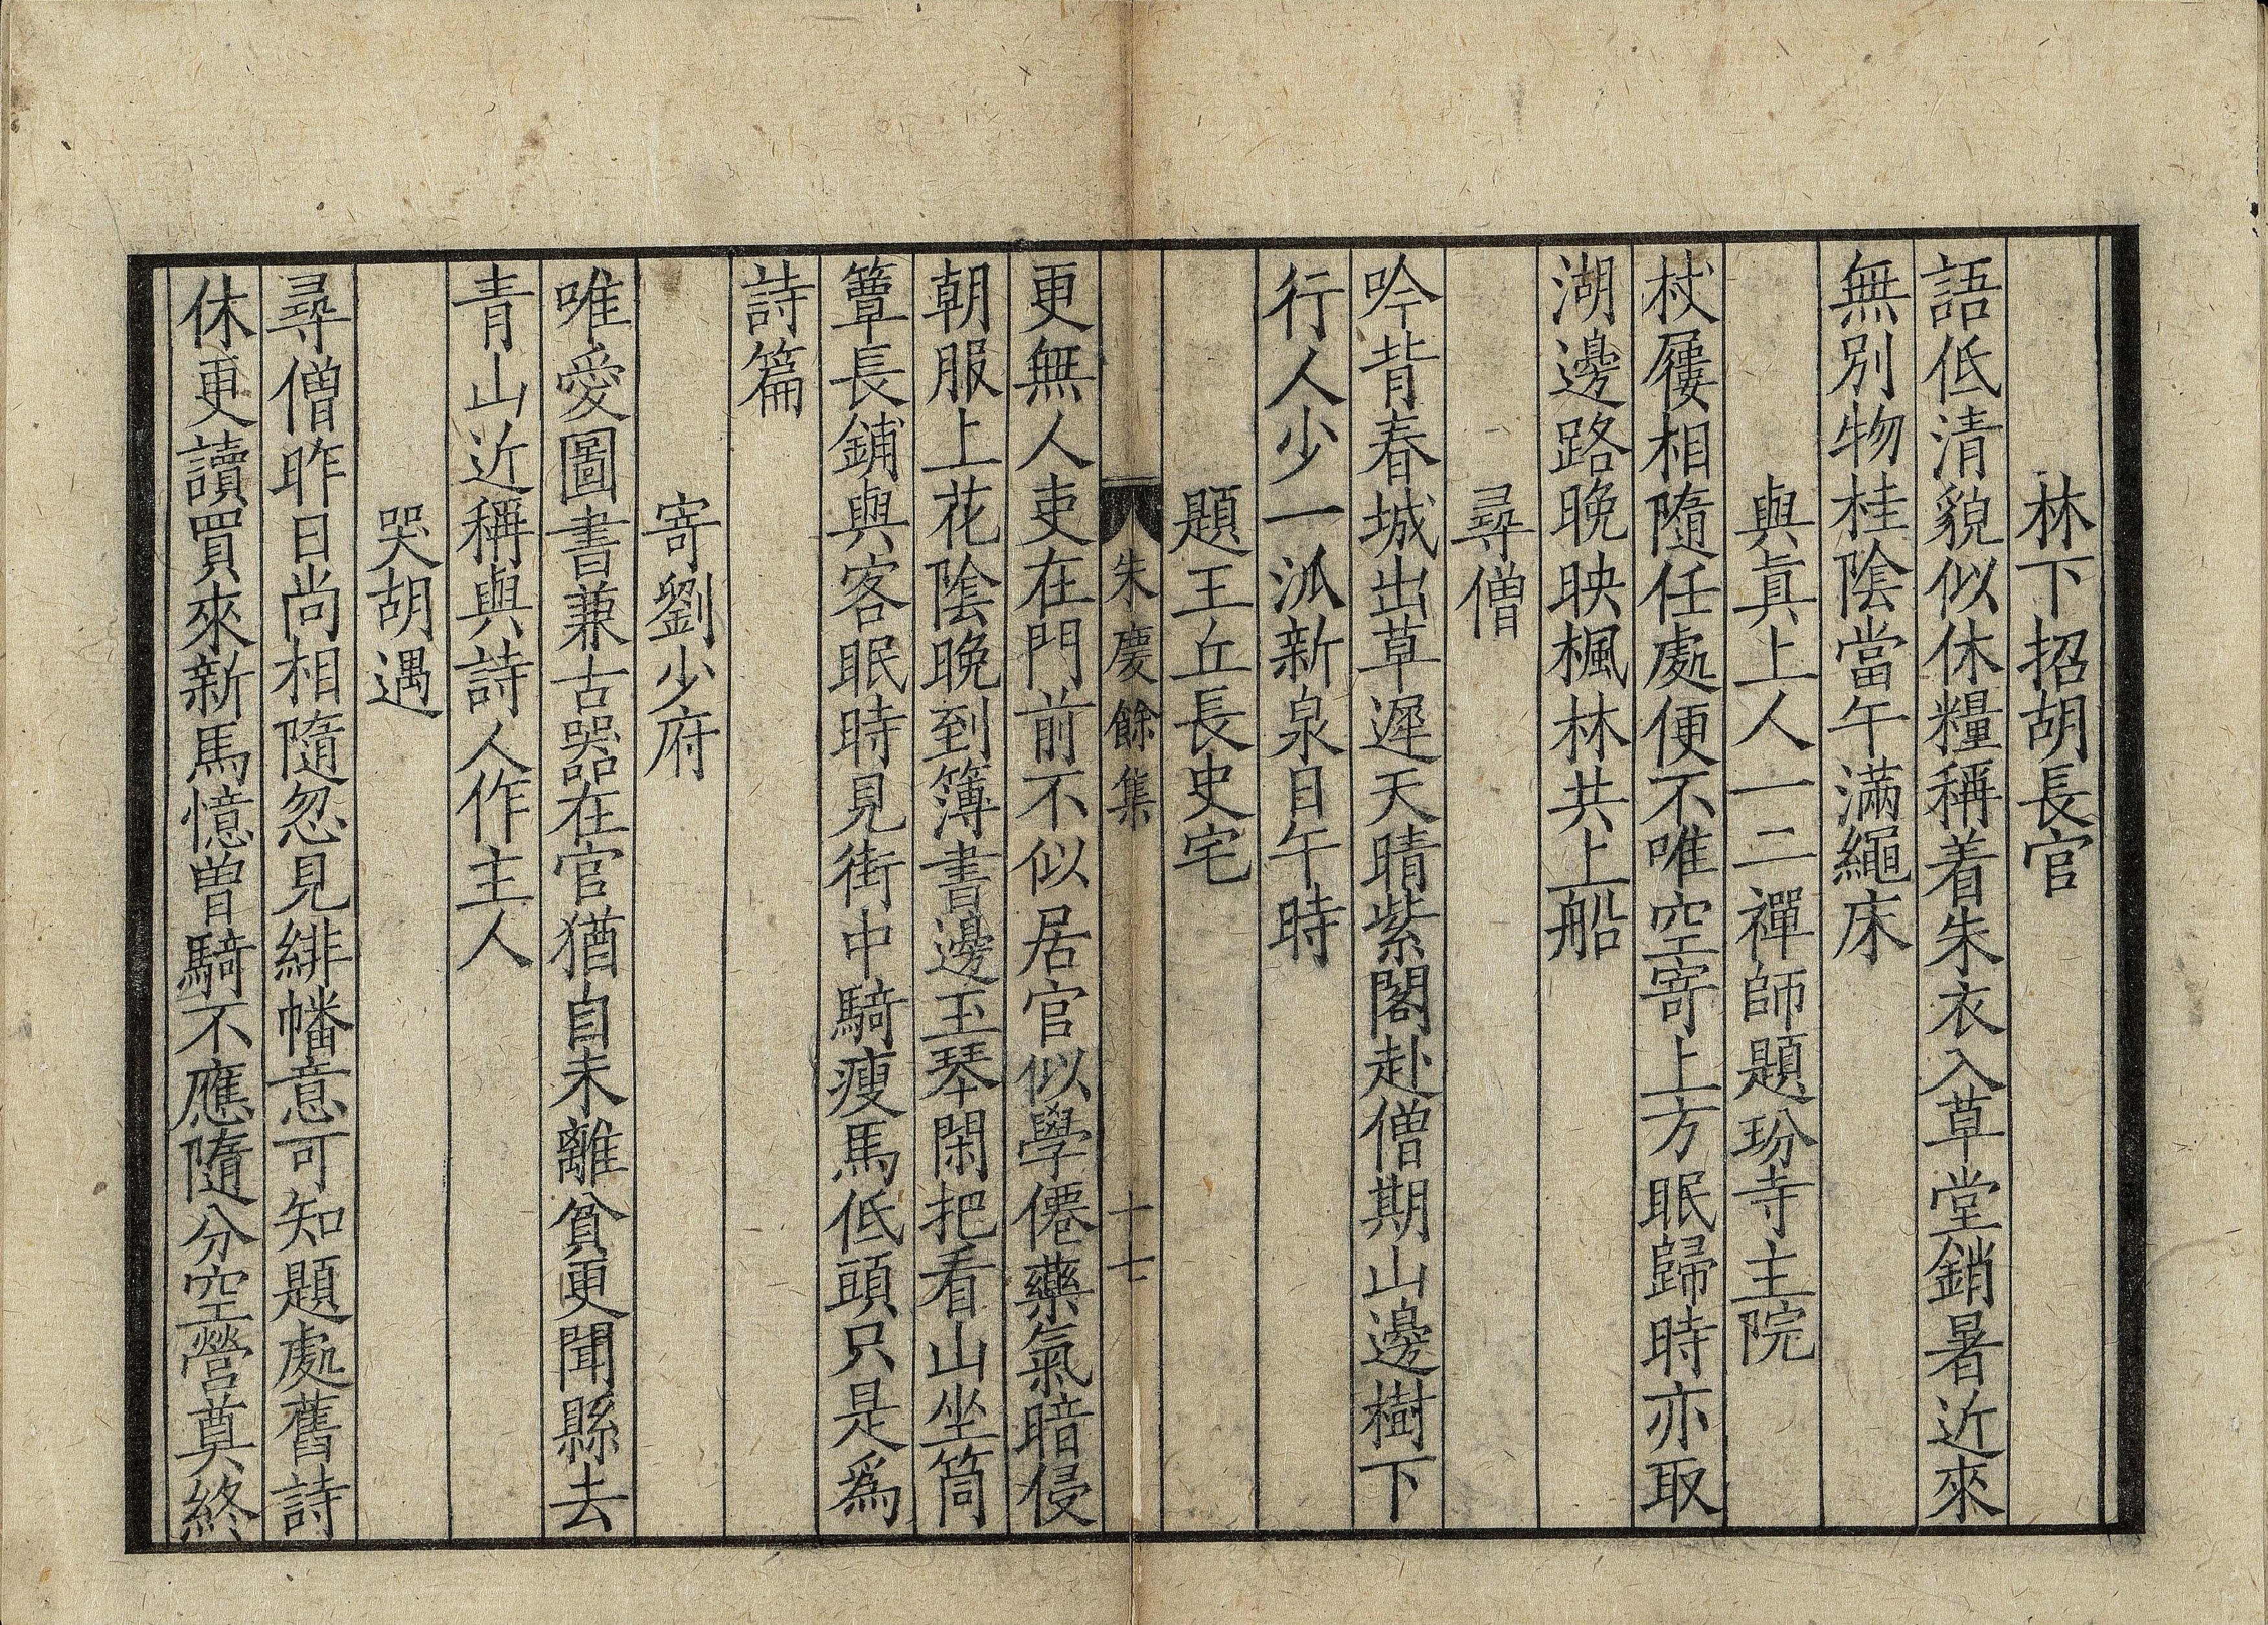 林下招胡長官
語低清貌似休糧稱着朱衣入草堂銷暑近來
無別物桂陰當午滿繩床
與眞上人一二禪師題玢寺主院
杖屨相隨任處便不唯空寄上方眠歸時亦取
湖邊路晚映楓林共上船
尋僧
吟背春城出草遲天晴紫閣赴僧期山邊樹下
行人少一派新泉日午時
題王丘長史宅
朱慶餘集
十七
更無人吏在門前不似居官似學僊藥氣暗侵
朝服上花陰晚到簿書邊玉琴閑把看山坐筒
簟長鋪與客眠時見街中騎瘦馬低頭只是爲
詩篇
寄劉少府
唯愛圖書兼古器在官猶自未離貧更聞縣去
青山近稱與詩人作主人
哭胡遇
尋僧昨日尚相隨忽見緋幡意可知題處舊詩
休更讀買來新馬憶曾騎不應隨分空營奠終